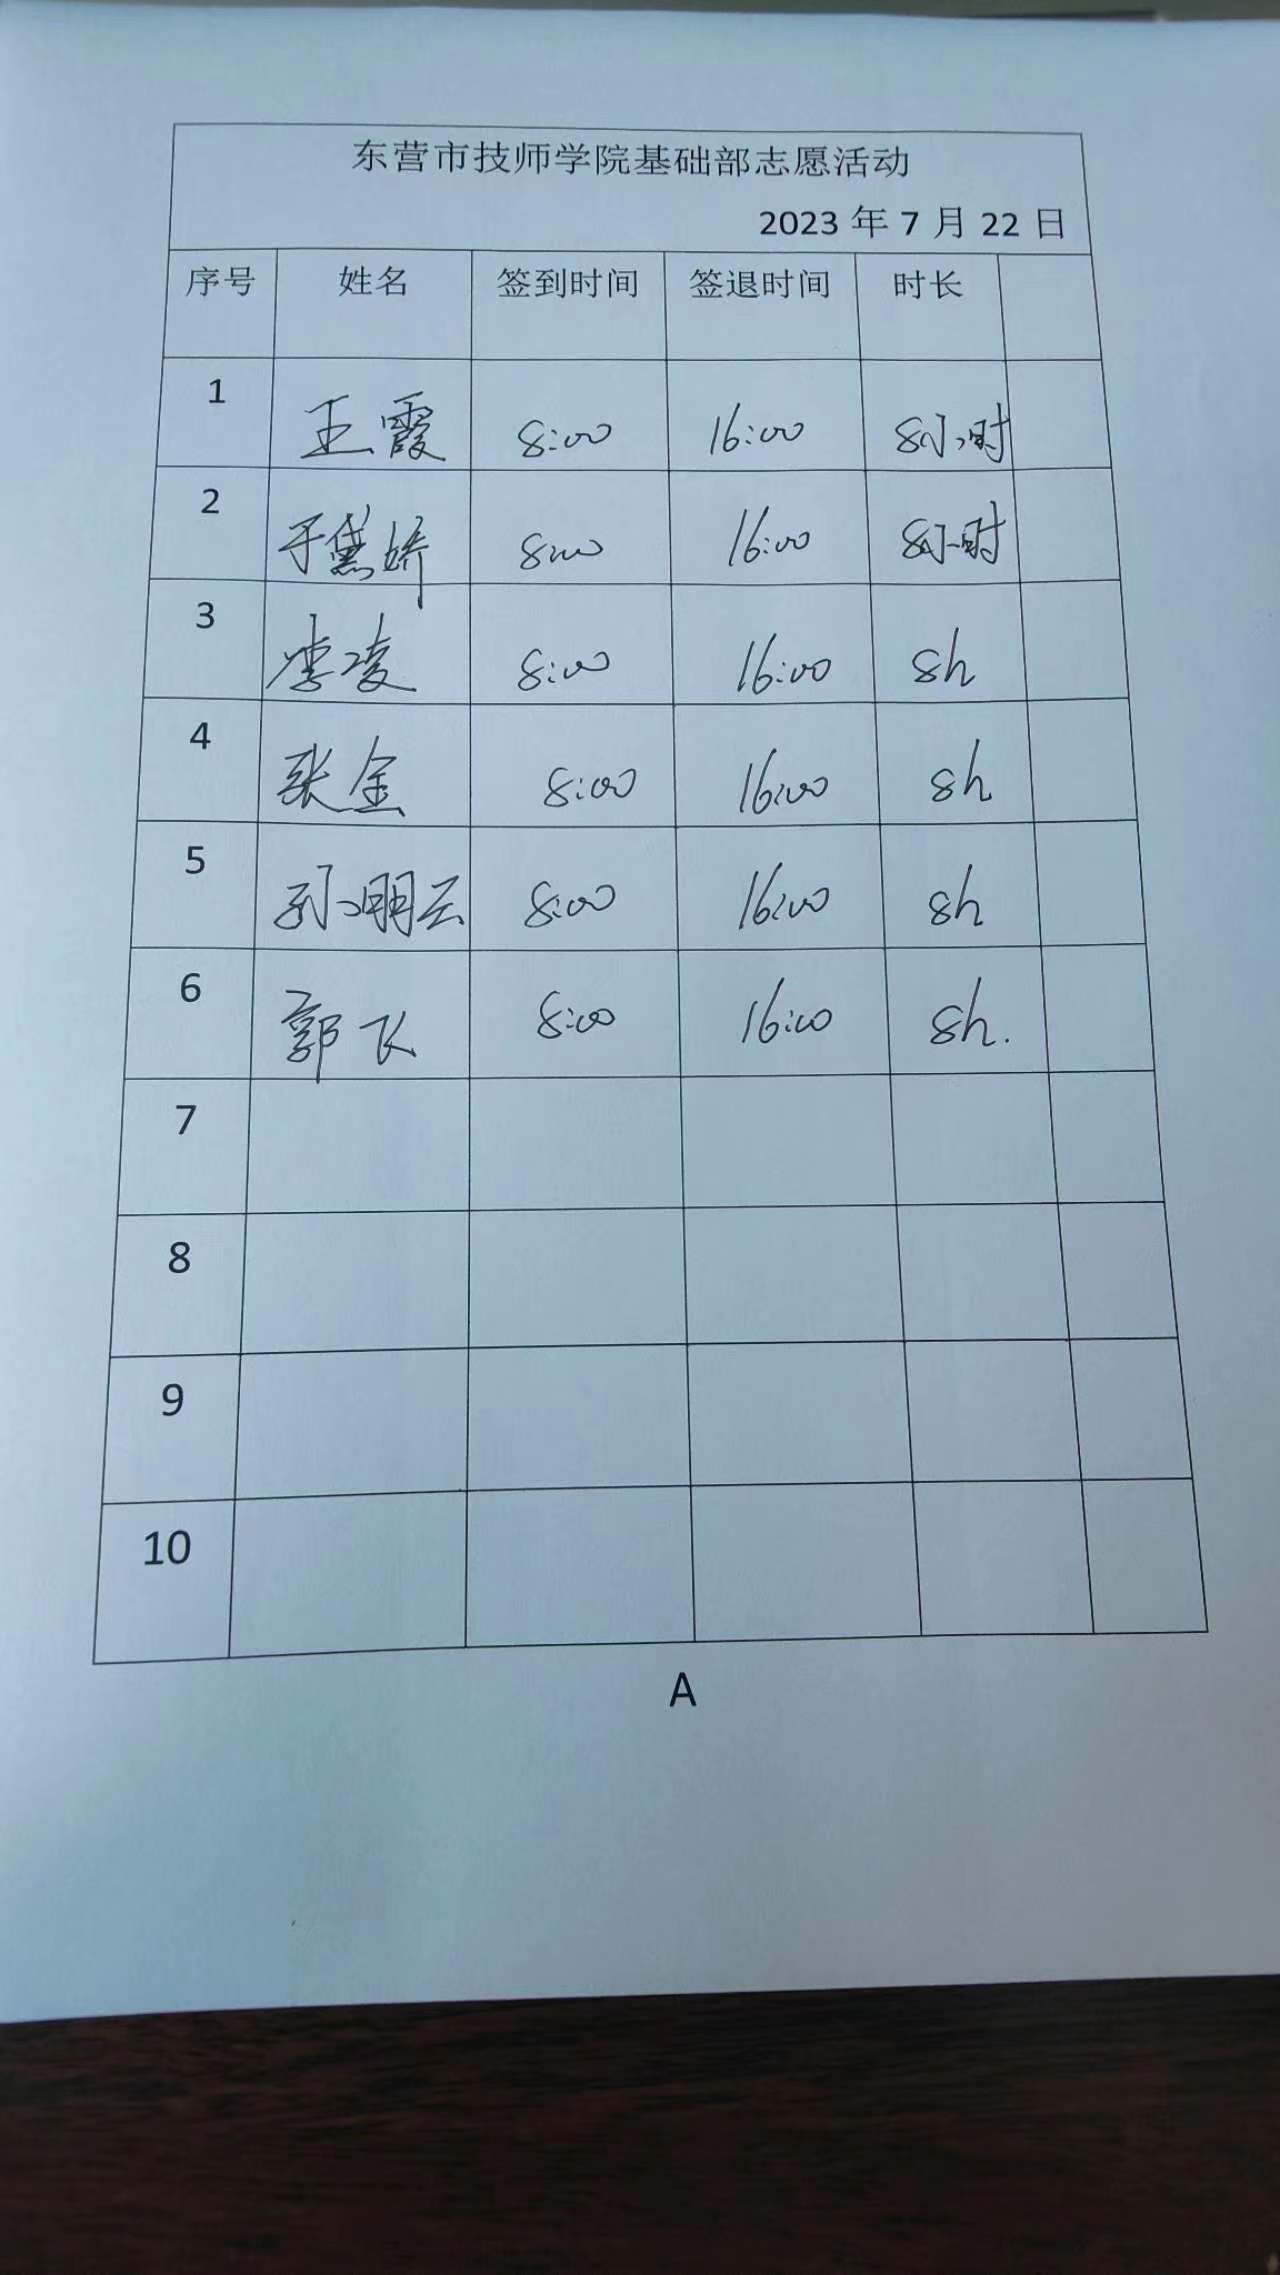 东营市技师学院基础部志愿活动
2023 年 7 月 22 日
序号 姓名 签到时间 签退时间 时长
1 王霞 8:00 16:00 8小时
2 于黛娇 8:00 16:00 8小时
3 李凌 8:00 16:00 8h
4 张金 8:00 16:00 8h
5 孙明云 8:00 16:00 8h
6 郭飞 8:00 16:00 8h.
7
8
9
10
A